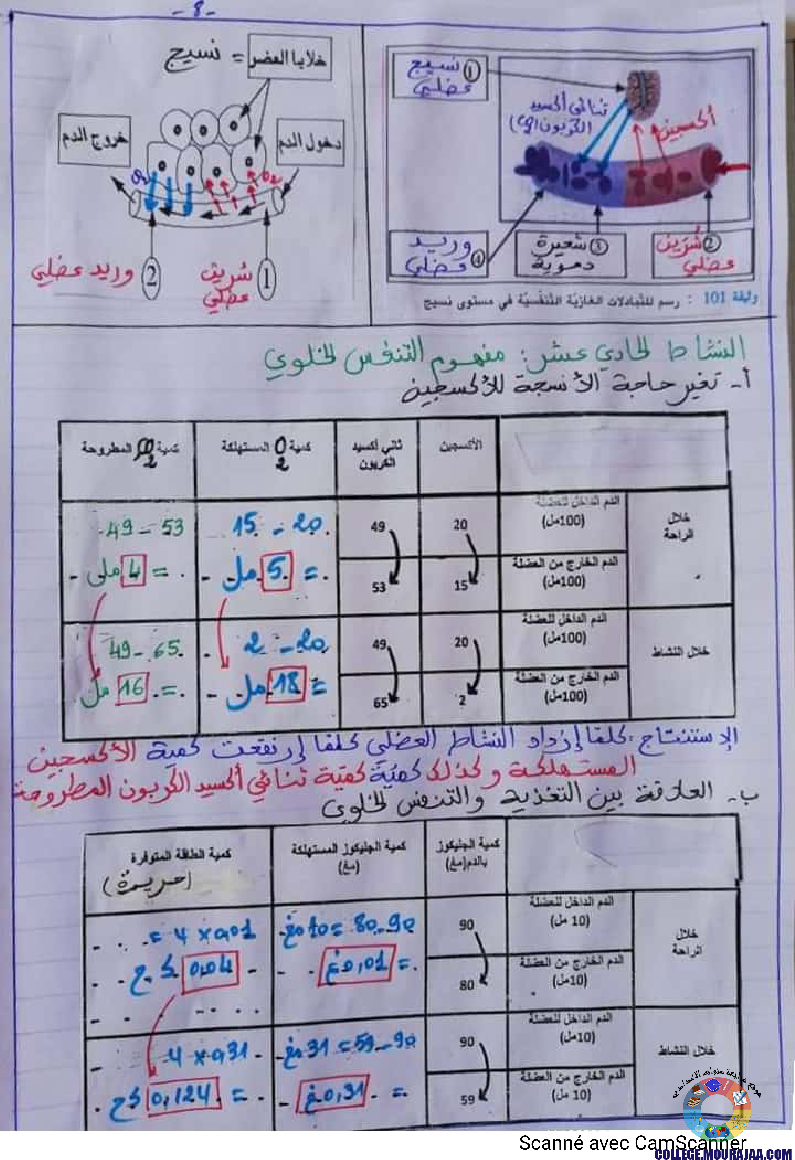 - 8 -
① نسيج
عضلي
ثنائي أكسيد
الكربون
أكسجين
② شريان
عضلي
③ شعيرة
دموية
④ وريد
عضلي
وثيقة 101 : رسم للتبادلات الغازية التنفسية في مستوى نسيج
خلايا العضو = نسيج
دخول الدم
خروج الدم
O2
1 شريان
عضلي
2 وريد عضلي
النشاط الحادي عشر: مفهوم التنفس الخلوي
أ- تغير حاجة الأنسجة للأكسجين
الأكسجين
ثاني أكسيد
الكربون
كمية O2 المستهلكة
كمية المطروحة
خلال
الراحة
الدم الداخل للعضلة
(100مل)
20
49
15 - 20
49 - 53
الدم الخارج من العضلة
(100مل)
15
53
= 5 مل
= 4 ملي
خلال النشاط
الدم الداخل للعضلة
(100مل)
20
49
2 - 20
49 - 65
الدم الخارج من العضلة
(100مل)
2
65
= 18 مل
= 16 مل
الإستنتاج: كلما إزداد النشاط العضلي كلما إرتفعت كمية الأكسجين
المستهلكة وكذلك كمية كمية ثنائي أكسيد الكربون المطروحة
ب- العلاقة بين التغذية والتنفس الخلوي
كمية الجليكوز
بالدم(مغ)
كمية الجليكوز المستهلكة
(مغ)
كمية الطاقة المتوفرة
(حريرة)
خلال
الراحة
الدم الداخل للعضلة
(10 مل)
90
80 - 90 = 10 مغ
0,01 × 4 =
الدم الخارج من العضلة
(10مل)
80
= 0,01 غ
0,04 ك ح
خلال النشاط
الدم الداخل للعضلة
(10مل)
90
59 - 90 = 31 مغ
0,31 × 4
الدم الخارج من العضلة
(10 مل)
59
= 0,31 غ
= 0,124 ك ح
موقع خليفة متولد الإعدادي
Scanné avec CamScanner
COLLEGE.MOURAJAA.COM